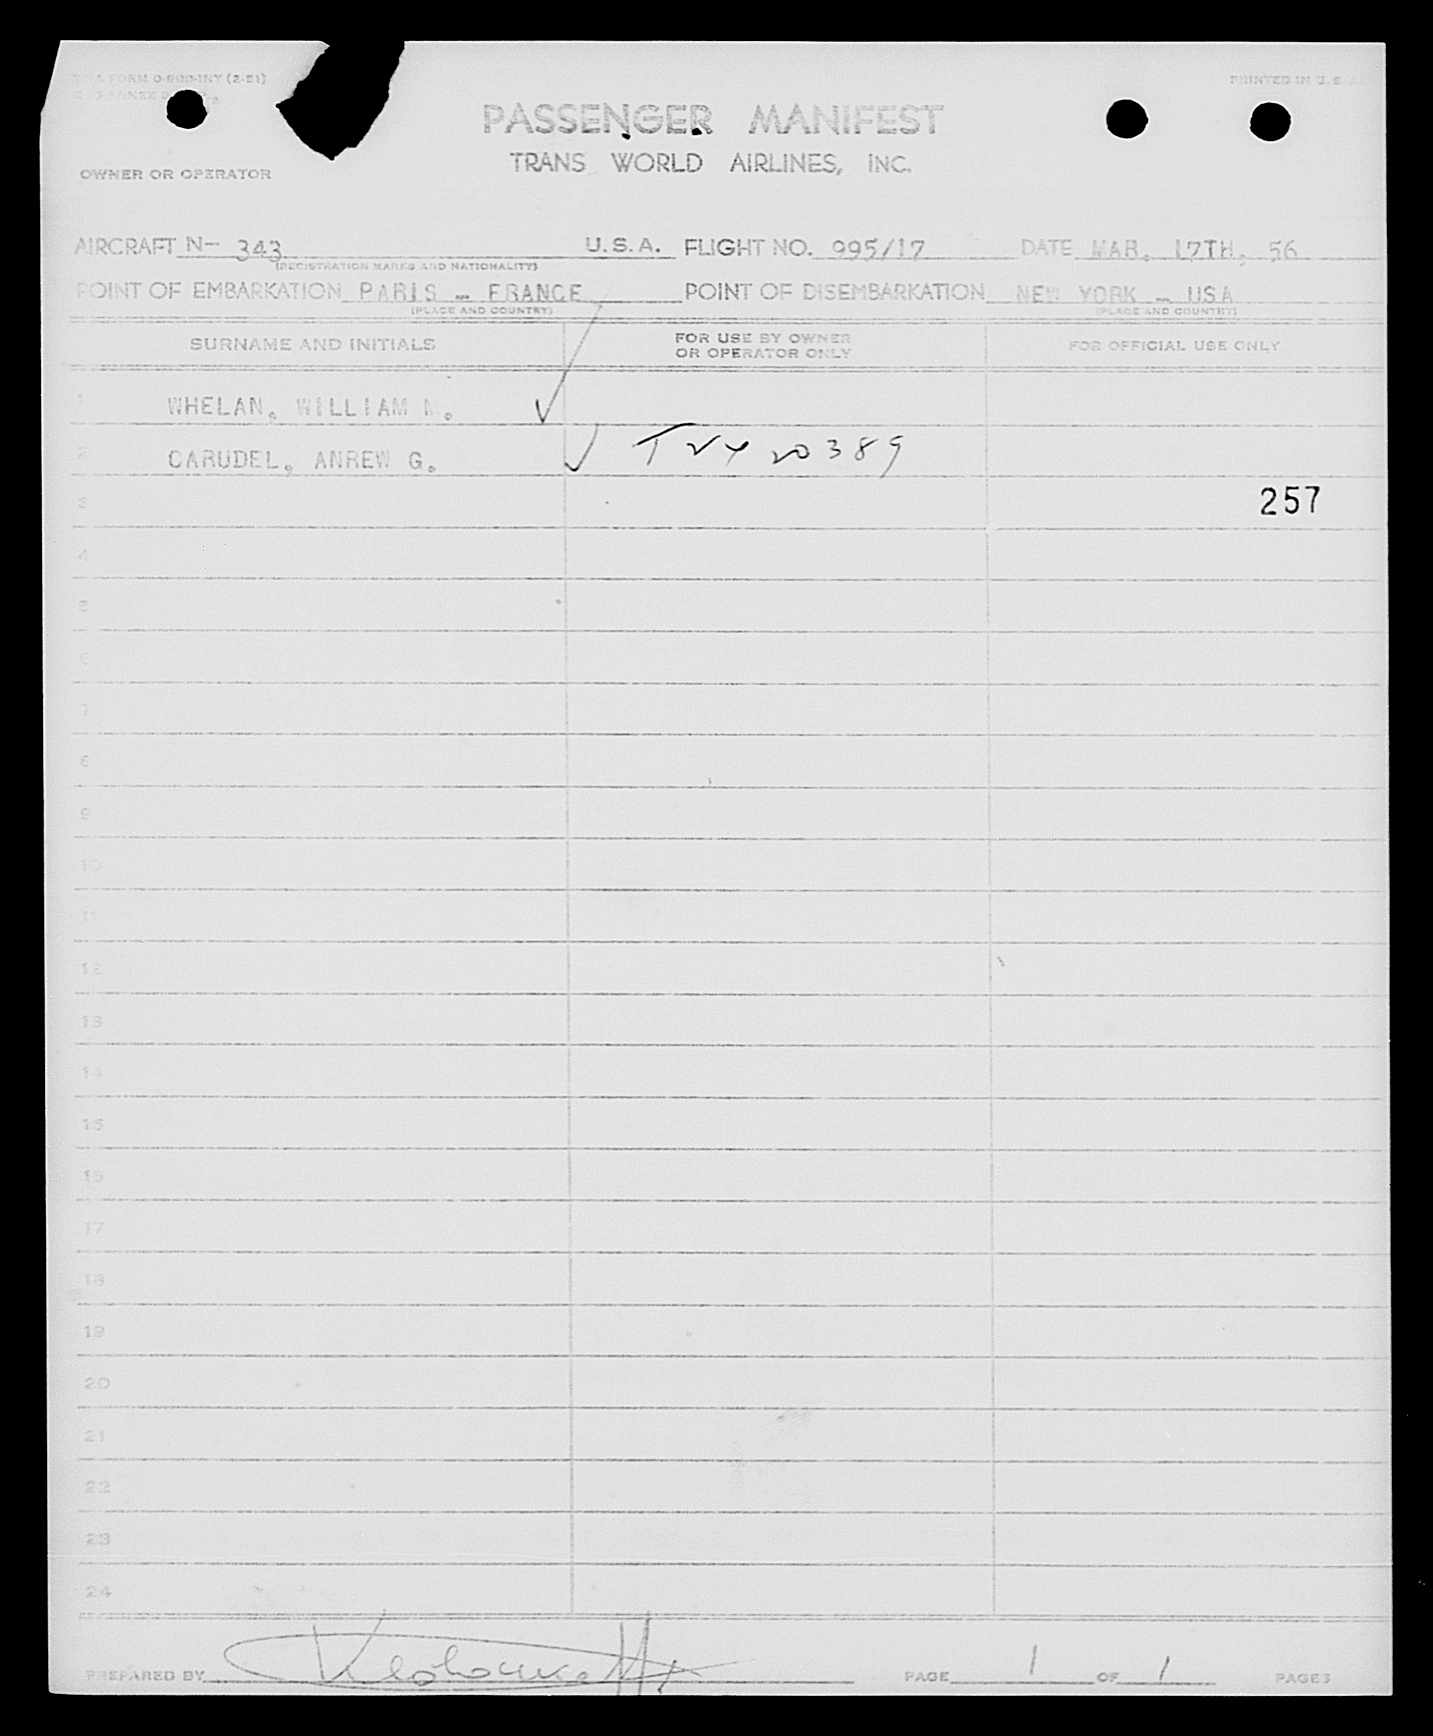 FORM O-800-INT (2-51)
PRINTED IN U.S.A.
PASSENGER MANIFEST
TRANS WORLD AIRLINES, INC.
OWNER OR OPERATOR
AIRCRAFT N- 343 U.S.A. FLIGHT NO. 995/17 DATE MAR. 17TH, 56
(REGISTRATION MARKS AND NATIONALITY)
POINT OF EMBARKATION PARIS - FRANCE POINT OF DISEMBARKATION NEW YORK - USA
(PLACE AND COUNTRY) (PLACE AND COUNTRY)
SURNAME AND INITIALS FOR USE BY OWNER OR OPERATOR ONLY FOR OFFICIAL USE ONLY
1 WHELAN, WILLIAM N. ✓
2 CARUDEL, ANREW G. ✓ 20389
3 257
4
5
6
7
8
9
10
11
12
13
14
15
16
17
18
19
20
21
22
23
24
PREPARED BY PAGE 1 OF 1 PAGES